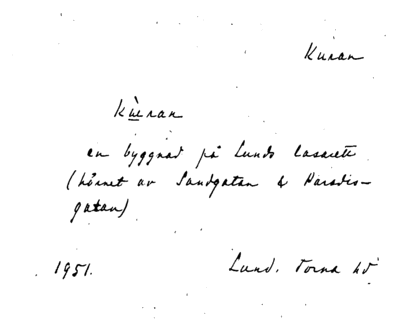 Kuran
kùran
en byggnad på Lunds lasarett
(hörnet av Sandgatan & Paradis-
gatan)
1951. Lund. Torna hd